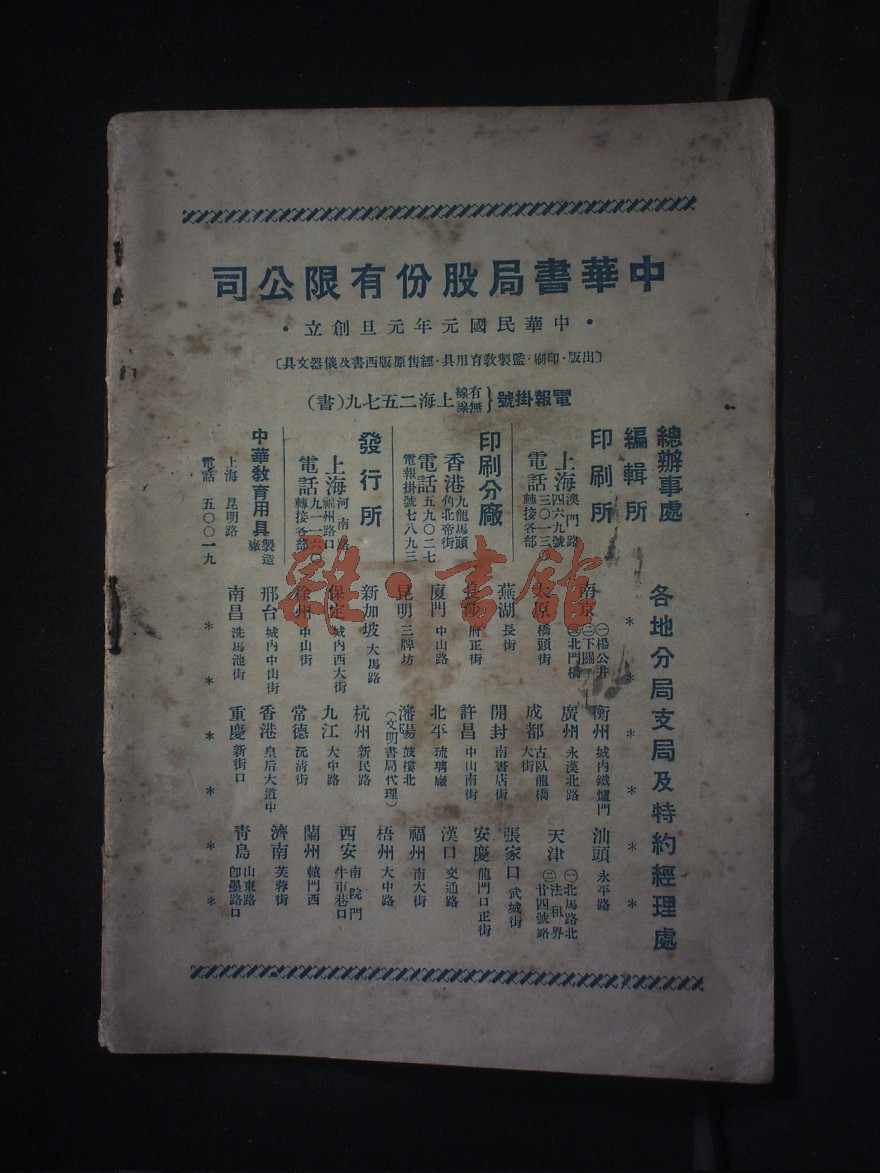 中華書局股份有限公司
·中華民國元年元旦創立·
〔出版·印刷·監製教育用具·經售原版西書及儀器文具〕
電報掛號{有線無線}上海二五七九(書)
總辦事處
編輯所
印刷所
上海澳門路四六九號
電話三〇一三〇轉接各部
印刷分廠
香港九龍馬頭角北帝街
電話五九〇二七
電報掛號七八九三
發行所
上海河南路福州路口
電話九一一六〇轉接各部
中華教育用具製造廠
上海 昆明路
電話 五〇〇一九
各地分局支局及特約經理處
* * * * * *
南京 ㈠楊公井 ㈡下關 ㈢北門橋
太原 橋頭街
蕪湖 長街
長沙 府正街
廈門 中山路
昆明 三牌坊
新加坡 大馬路
保定 城内西大街
徐州 中山街
邢台 城内中山街
南昌 洗馬池街
衡州 城内鐵爐門
廣州 永漢北路
成都 古臥龍橋大街
開封 南書店街
許昌 中山南街
北平 琉璃廠
瀋陽 鼓樓北
(文明書局代理)
杭州 新民路
九江 大中路
常德 沅清街
香港 皇后大道中
重慶 新街口
汕頭 永平路
天津 ㈠北馬路北 ㈡法租界廿四號路
張家口 武城街
安慶 龍門口正街
漢口 交通路
福州 南大街
梧州 大中路
西安 南院門牛市巷口
蘭州 轅門西
濟南 芙蓉街
青島 山東路即墨路口
* * * * * *
雜·書館